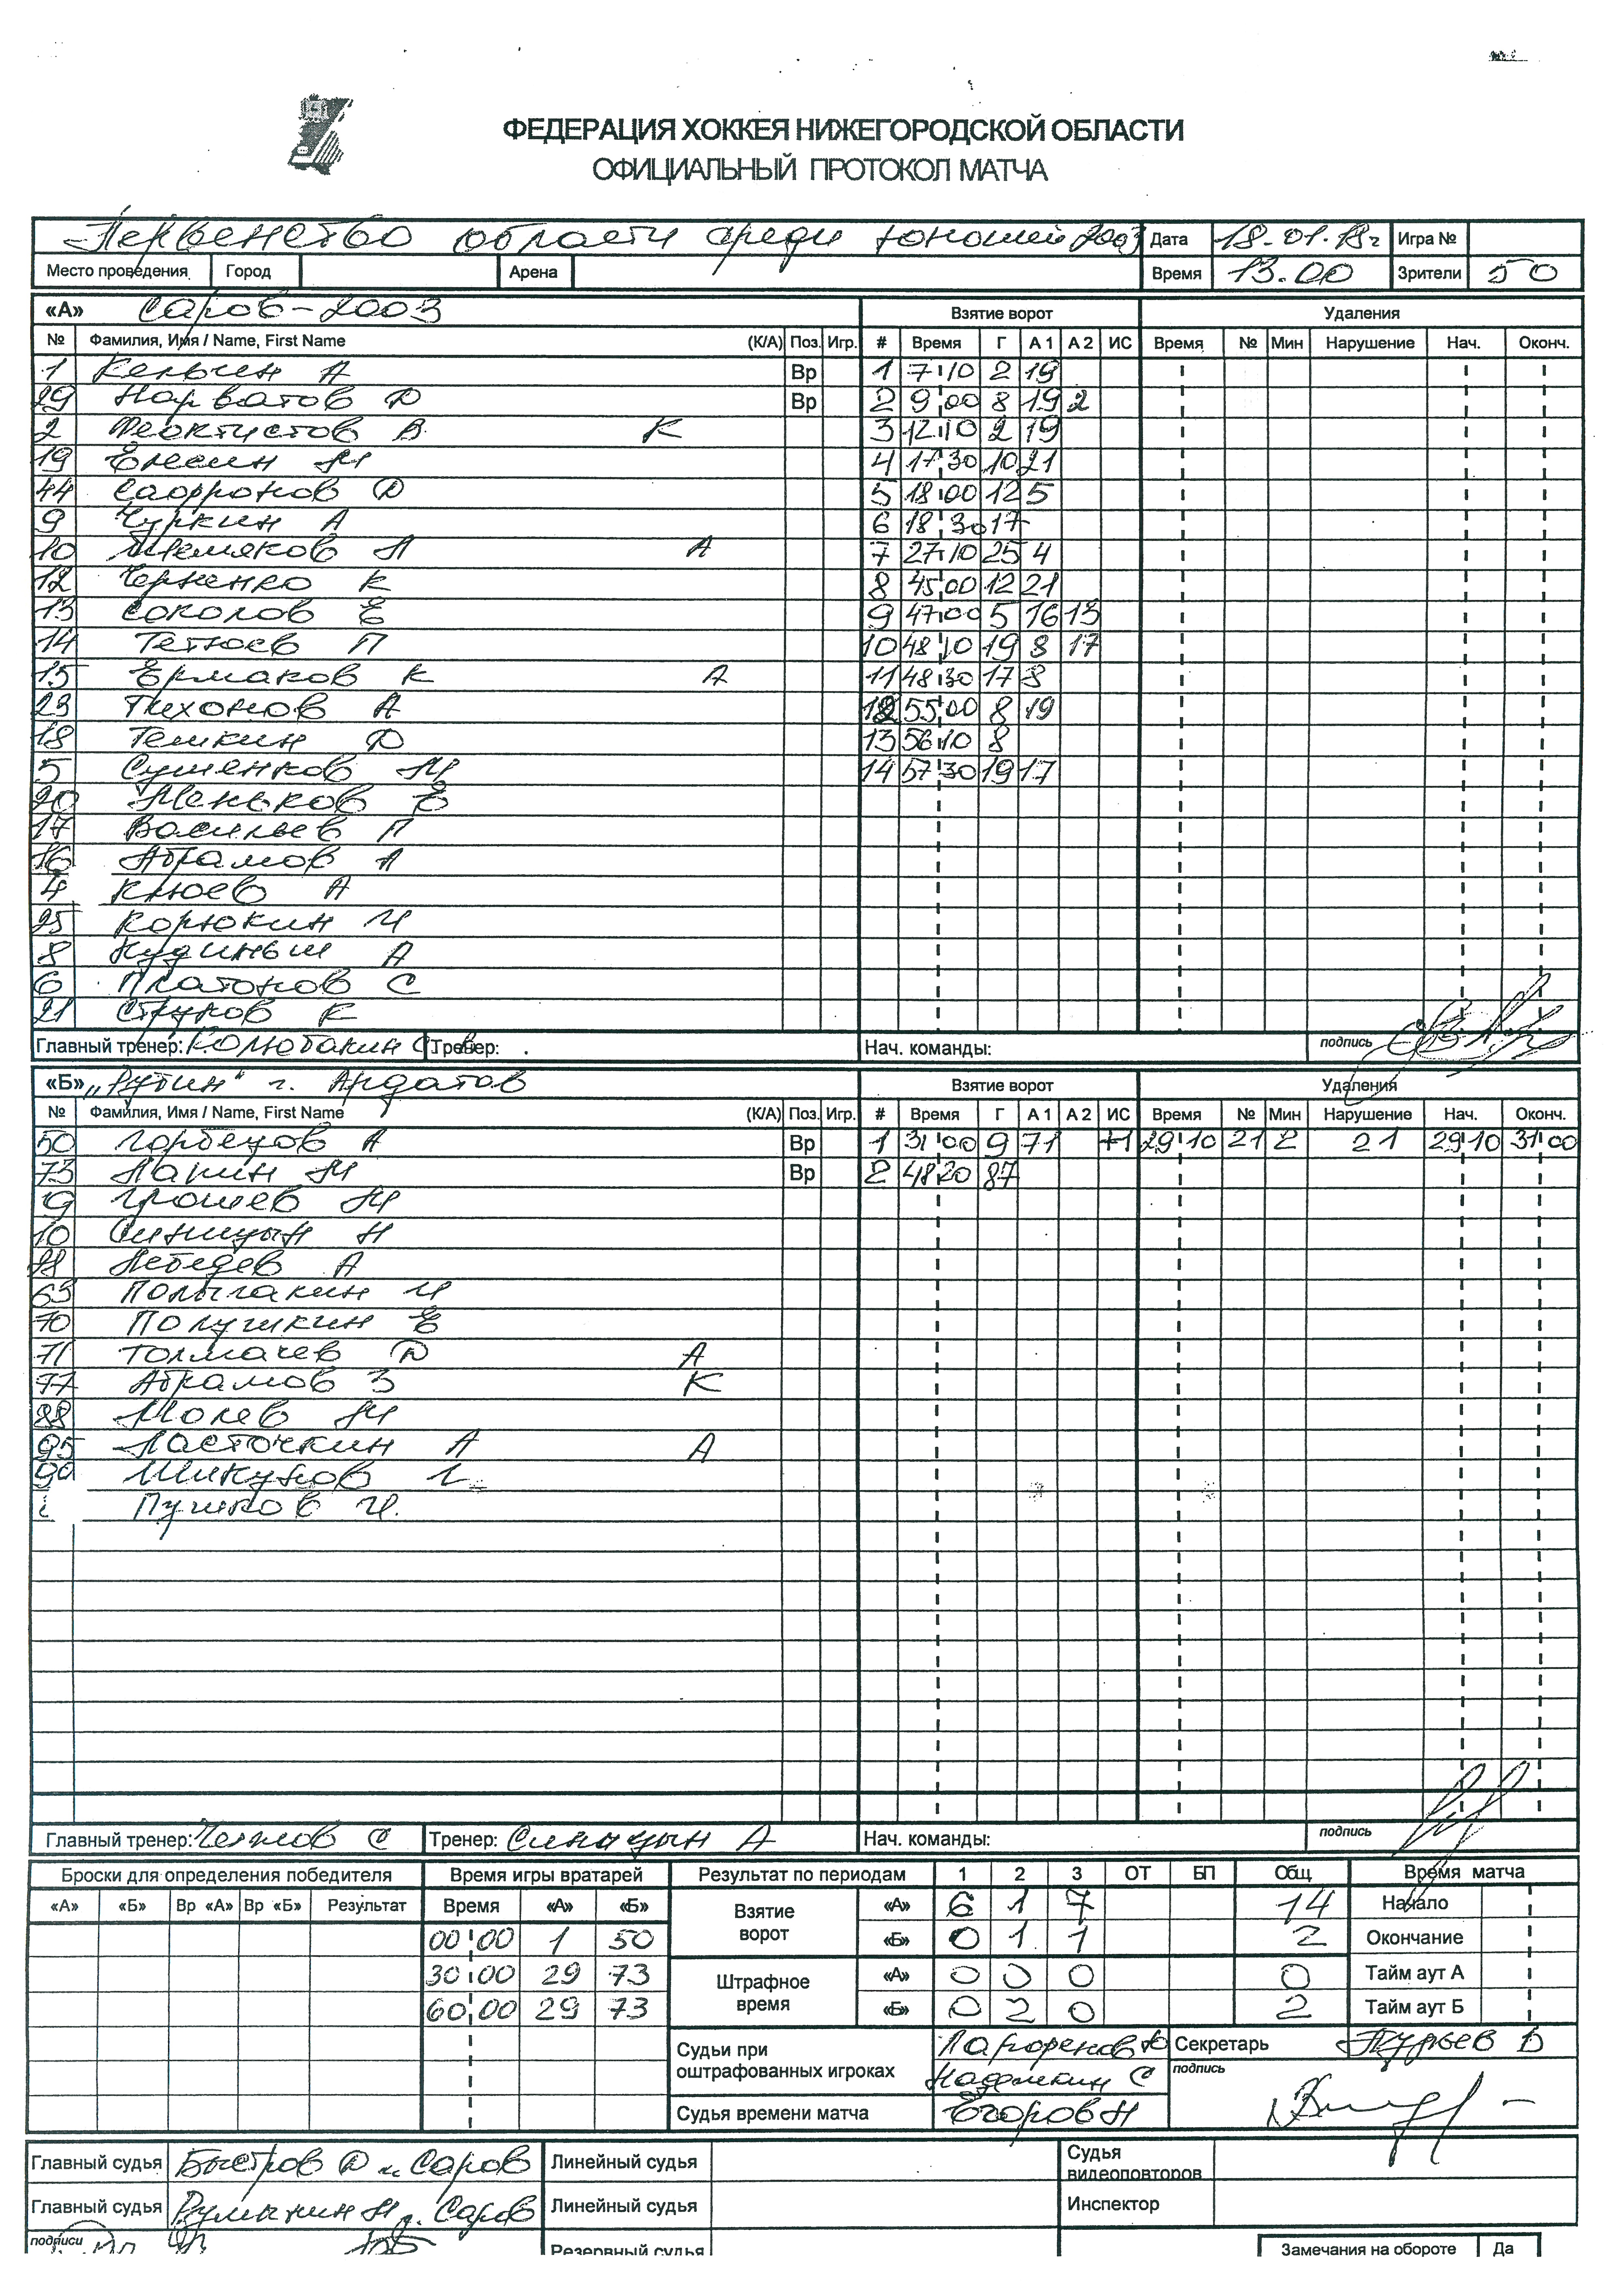 ФЕДЕРАЦИЯ ХОККЕЯ НИЖЕГОРОДСКОЙ ОБЛАСТИ
ОФИЦИАЛЬНЫЙ ПРОТОКОЛ МАТЧА
Первенство области среди юношей 2003 Дата 18.01.18г Игра №
Место проведения Город Арена Время 13.00 Зрители 50
«А» Саров-2003 Взятие ворот Удаления
№ Фамилия, Имя / Name, First Name (К/А) Поз. Игр. # Время Г А 1 А 2 ИС Время № Мин Нарушение Нач. Оконч.
1 А Вр 1 7 10 2 19
29 Нарватов Д Вр 2 9 00 8 19 2
2 Феоктистов В К 3 12 10 2 19
19 Елесин М 4 17 30 10 21
44 Сафронов Д 5 18 00 12 5
9 Чуркин А 6 18 30 17
10 А 7 27 10 25 4
12 Черненко К 8 45 00 12 21
13 Соколов Е 9 47 00 5 16 13
14 Тетюев П 10 48 10 19 8 17
15 Ермаков К А 11 48 30 17 8
23 Тихонов А 12 55 00 8 19
18 Темкин Д 13 56 10 8
5 Сушенков М 14 57 30 19 17
20 Меньков Е
17 Васильев П
16 Абрамов А
4 Клюев А
25 Корюкин И
8 А
6 Платонов С
21 Струков К
Главный тренер: Колюбакин С В Тренер: Нач. команды: подпись
«Б» „Рубин" г. Ардатов Взятие ворот Удаления
№ Фамилия, Имя / Name, First Name (К/А) Поз. Игр. # Время Г А 1 А 2 ИС Время № Мин Нарушение Нач. Оконч.
50 Горбецов А Вр 1 31 00 9 71 +1 29 10 21 2 21 29 10 31 00
73 Лапин М Вр 2 48 20 87
9 Грошев М
10 Синицын Н
Лебедев А
63 И
70 Полушкин Е
71 Толмачев Д А
77 Абрамов З К
88 Молев М
95 Ласточкин А А
Шикунов
Пушков И.
Главный тренер: С Тренер: Синицын А Нач. команды: подпись
Броски для определения победителя Время игры вратарей Результат по периодам 1 2 3 ОТ БП Общ Время матча
«А» «Б» Вр «А» Вр «Б» Результат Время «А» «Б» Взятие ворот «А» 6 1 7 14 Начало
00 00 1 50 «Б» 0 1 1 2 Окончание
30 00 29 73 Штрафное время «А» 0 0 0 0 Тайм аут А
60 00 29 73 «Б» 0 2 0 2 Тайм аут Б
Судьи при оштрафованных игроках Секретарь Гурьев В
С подпись
Судья времени матча Егоров Н
Главный судья Быстров Д г. Саров Линейный судья Судья видеоповторов
Главный судья Н г. Саров Линейный судья Инспектор
подписи Резервный судья Замечания на обороте Да